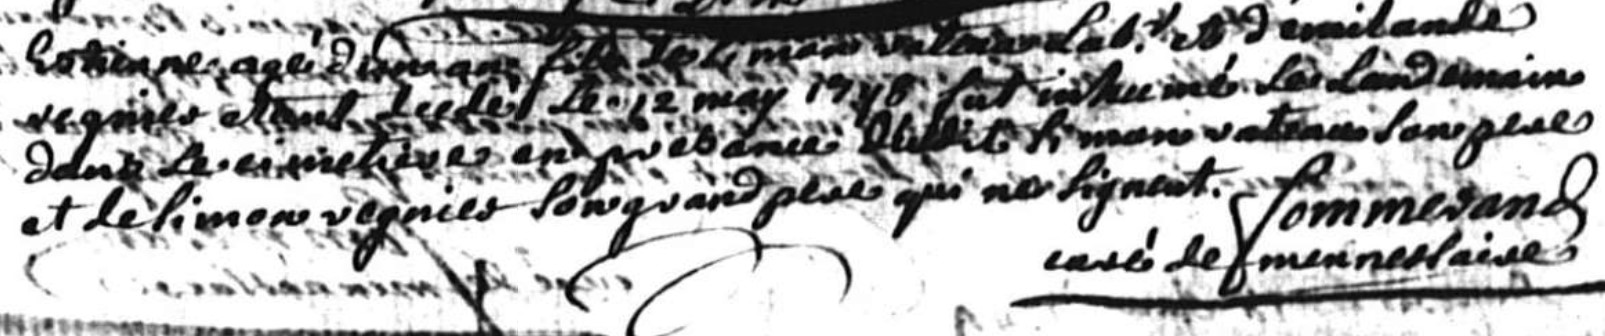 Estienne agé d'un an fils de Simon vateau Lab.r et d'emilande
regnier etant decedé le 12 may 1778 fut inhumé le landemain
dans le cimetiere en presance dudit Simon vateau son pere
et de Simon regnier son grand pere qui ne signent. Sommerand
curé de mennessaire